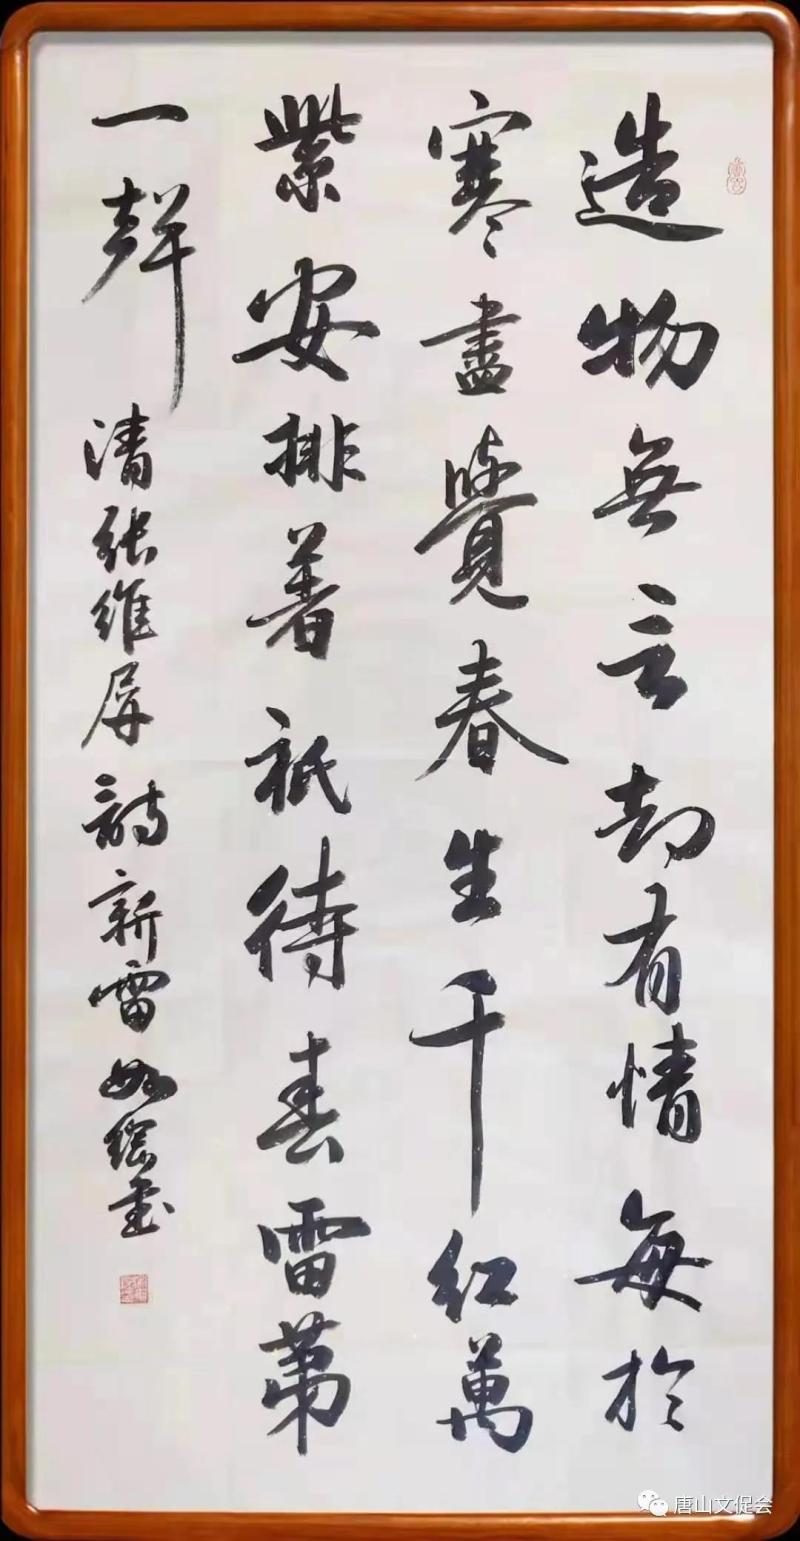 造物無言却有情每於
寒盡覺春生千紅萬
紫安排著祇待春雷第
一聲
清張維屏詩新雷如繇書
唐山文促会